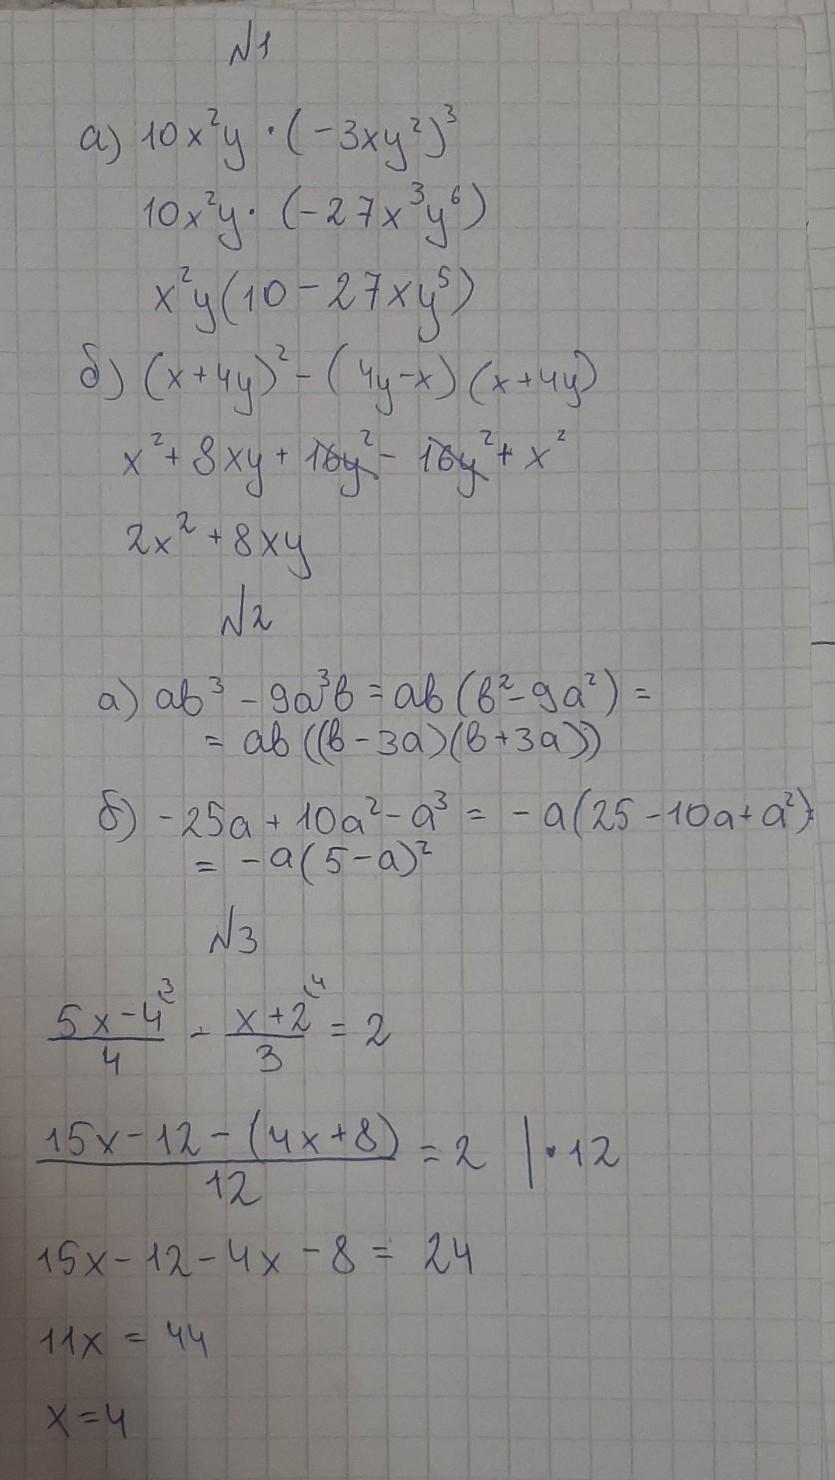 №1
а) 10x²y · (-3xy²)³
10x²y · (-27x³y⁶)
x²y(10 - 27xy⁵)
б) (x+4y)² - (4y-x)(x+4y)
x² + 8xy + 16y² - 16y² + x²
2x² + 8xy
№2
а) ab³ - 9a³b = ab(b² - 9a²) =
= ab((b - 3a)(b + 3a))
б) -25a + 10a² - a³ = -a(25 - 10a + a²) =
= -a(5 - a)²
№3
(5x - 4)/4 ⁽³ - (x + 2)/3 ⁽⁴ = 2
(15x - 12 - (4x + 8))/12 = 2 | · 12
15x - 12 - 4x - 8 = 24
11x = 44
x = 4